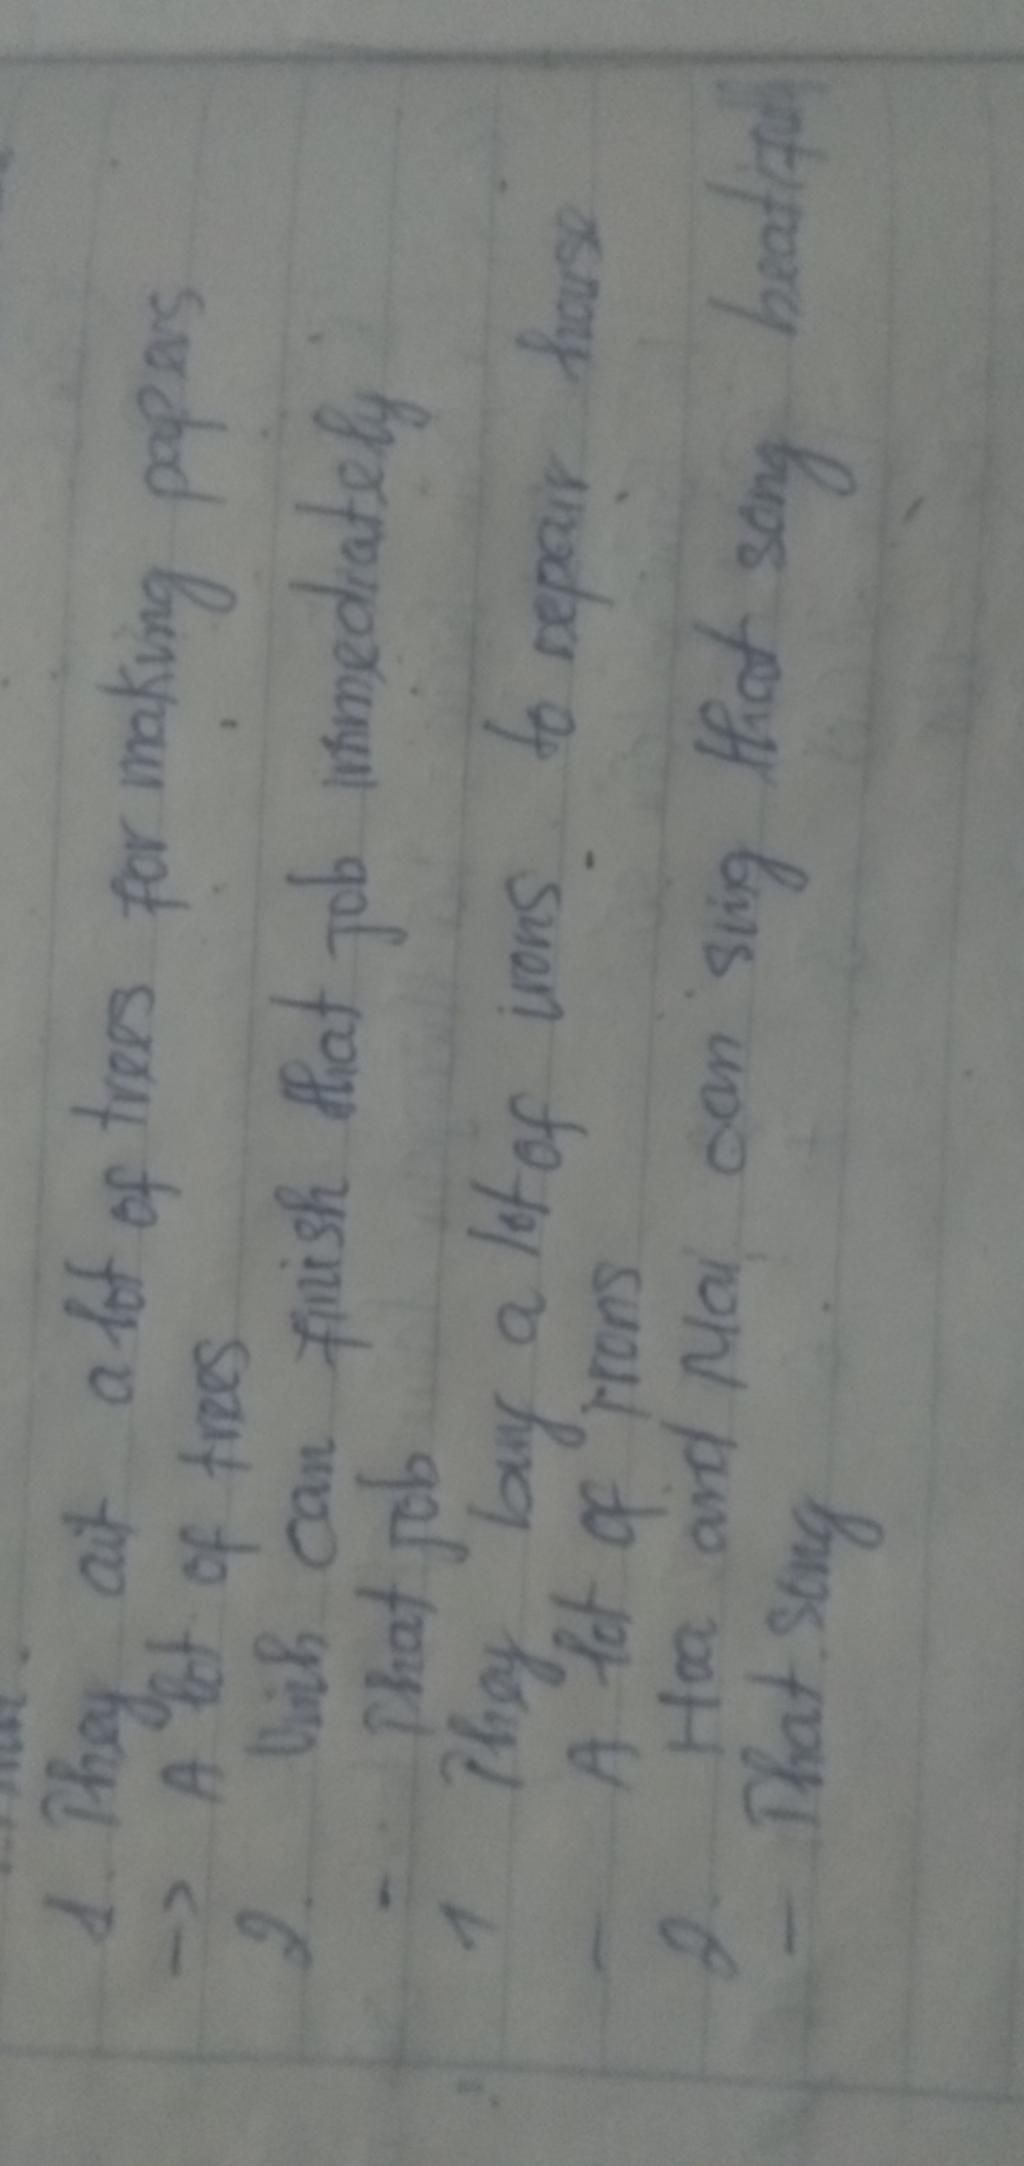 1. They cut a lot of trees for making papers
-> A lot of trees
2. Vinh can finish that job immediately
- That job
1 They buy a lot of irons to repair house
- A lot of irons
2. Hoa and Mai can sing that song
- That song